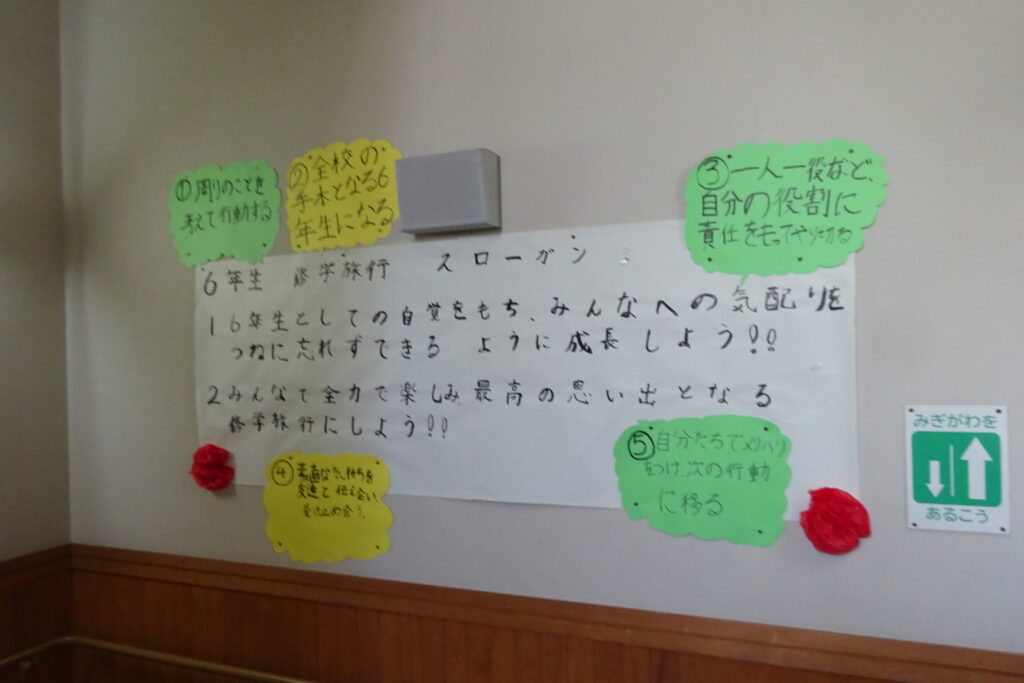 ①周りのことを
考えて行動する
②全校の
手本となる6
年生になる
③一人一役など、
自分の役割に
責任をもってやり切る
6年生 修学旅行 スローガン
1 6年生としての自覚をもち、みんなへの気配りを
つねに忘れずできる ように成長しよう!!
2 みんなで全力で楽しみ、最高の思い出となる
修学旅行にしよう!!
④素直な気持ちを
友達と伝え合い、
受け止め合う。
⑤自分たちでメリハリ
をつけ、次の行動
に移る
みぎがわを
あるこう